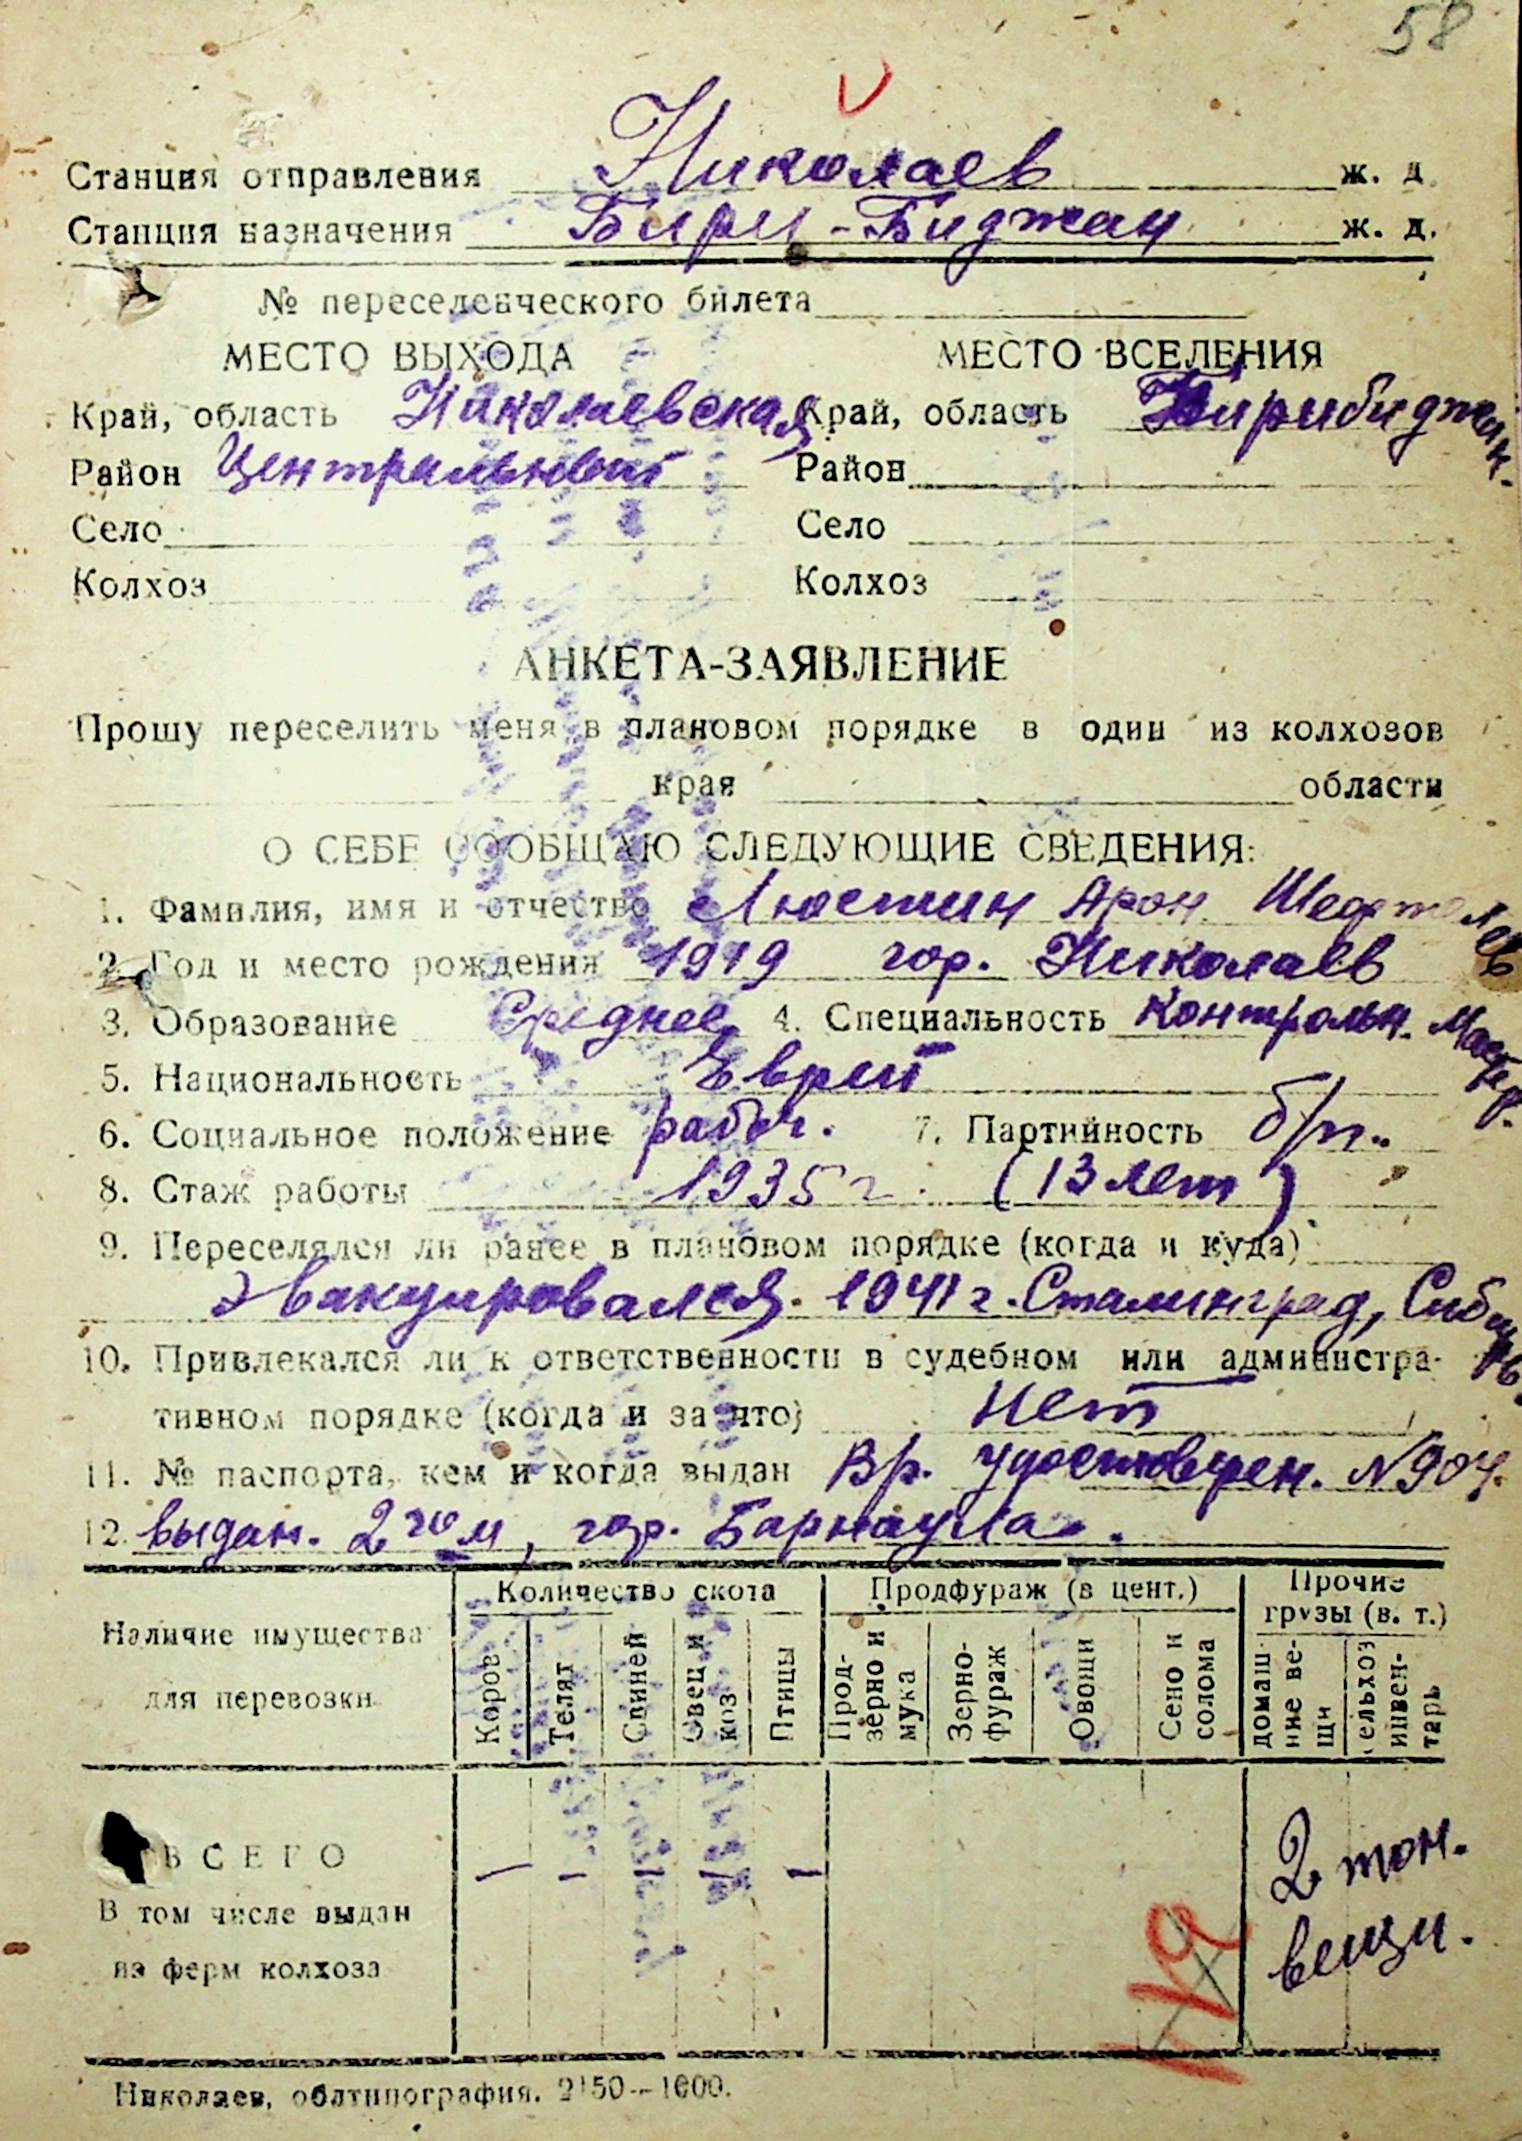 58
Станция отправления Николаев ж. д.
Станция назначения Бири-Биджан ж. д.
№ переселенческого билета
МЕСТО ВЫХОДА МЕСТО ВСЕЛЕНИЯ
Край, область Николаевская Край, область Бирибиджан.
Район Центральный Район
Село Село
Колхоз Колхоз
АНКЕТА-ЗАЯВЛЕНИЕ
Прошу переселить меня в плановом порядке в один из колхозов
края области
О СЕБЕ СООБЩАЮ СЛЕДУЮЩИЕ СВЕДЕНИЯ:
1. Фамилия, имя и отчество Люстин Арон Шефтелев
2. Год и место рождения 1919 гор. Николаев
3. Образование Среднее 4. Специальность Контрольн. Мастер.
5. Национальность Еврей
6. Социальное положение рабоч. 7. Партийность б/п.
8. Стаж работы 1935 г. (13 лет)
9. Переселялся ли ранее в плановом порядке (когда и куда)
Эвакуировался. 1941 г. Сталинград, Сибирь.
10. Привлекался ли к ответственности в судебном или администра-
тивном порядке (когда и за что) Нет
11. № паспорта, кем и когда выдан Вр. удостоверен. №904.
12. выдан. 2 го/м, гор. Барнаула.
Наличие имущества для перевозки
Количество скота Продфураж (в цент.) Прочие грузы (в. т.)
Коров Телят Свиней Овец и коз Птицы Прод-зерно и мука Зерно-фураж Овощи Сено и солома домаш-ние ве-щи сельхоз инвен-тарь
ВСЕГО — — — — — 2 тон. вещи.
В том числе выдан
из ферм колхоза
Николаев, облтипография. 2150—1000.